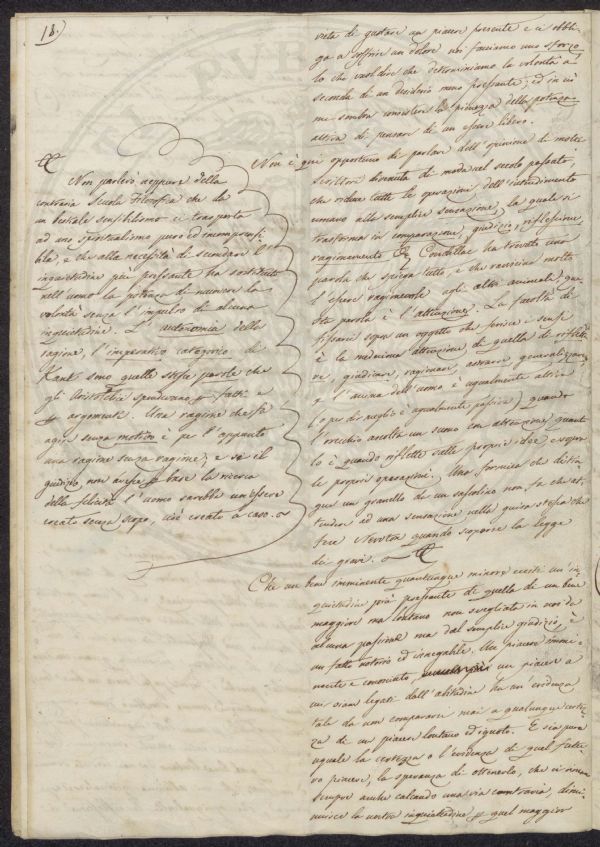 18.)
vieta di gustare un piacere presente e ci obbli-
ga a soffrire un dolore noi facciamo uno sforzo
lo che vuol dire che determiniamo la volontà a
seconda di un desiderio meno pressante; ed in ciò
me sembra consistere la pienezza della potenza
attiva di pensare di un essere libero.
Non è qui opportuno di parlare dell'opinione di molti
scrittori divenuta di moda nel secolo passato,
che riduce tutte le operazioni dell'intendimento
umano alla semplice sensazione, la quale si
trasforma in comparazione, giudizio, riflessione,
ragionamento &c. Condillac ha trovato una
parola che spiega tutto, e che ravvicina molto
l'essere ragionevole agli altri animali; que-
sta parola è l'attenzione. La facoltà di
fissarsi sopra un oggetto che ferisce i sensi
è la medesima attenzione di quella di riflette-
re, giudicare, ragionare, astrarre, generalizzare,
e l'anima dell'uomo è ugualmente attiva
(o per dir meglio è ugualmente passiva) quando
l'orecchio ascolta un suono con attenzione quant
lo è quando riflette sulle proprie idee e sopra
le proprie operazioni. Una formica che distin-
gue un granello da un sassolino non fa che at-
tendere ad una sensazione nella guisa stessa che
fece Newton quando scoperse la legge
dei gravi.
Che un bene imminente quantunque minore ecciti un'in-
quietudine più pressante di quella di un bene
maggiore ma lontano non svegliata in noi da
alcuna passione ma dal semplice giudizio, è
un fatto notorio ed innegabile. Un piacere immi-
nente e conosciuto, un piacere a
cui siam legati dall'abitudine ha un'evidenza
tale da non compararsi mai a qualunque certez-
za di un piacere lontano ed ignoto. E sia pure
uguale la certezza o l'evidenza di quel futu-
ro piacere, la speranza di ottenerlo, che ci rimane
sempre anche calcando una via contraria, dimi-
nuisce la nostra inquietudine e quel maggior
Non parlerò neppure della
contraria Scuola Filosofica che da
un bestiale sensibilismo ci trasporta
ad uno spiritualismo puro ed incomprensi-
bile, e che alla necessità di secondare l'
inquietudine più pressante ha sostituito
nell'uomo la potenza di muovere la
volontà senza l'impulso di alcuna
inquietudine. L'autonomia della
ragione, l'imperativo categorico di
Kant sono quelle stesse parole che
gli Aristotelici spendevano per fatti e
per argomenti. Una ragione che fa
agire senza motivo è per l'appunto
una ragione senza ragione; e se il
giudizio non avesse per base la ricerca
della felicità l'uomo sarebbe un essere
creato senza scopo, cioè creato a caso.